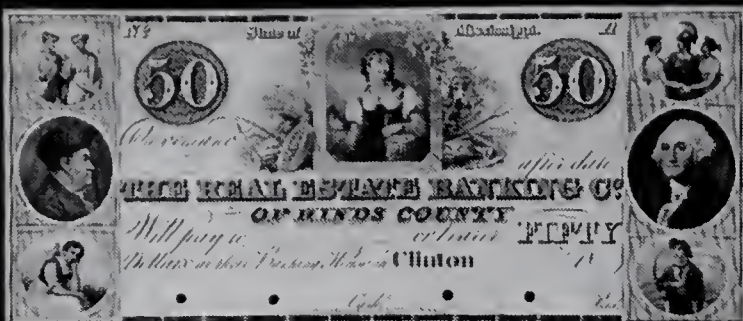 State of Mississippi.
50 50
after date
THE REAL ESTATE BANKING Co.
OF HINDS COUNTY
Will pay to or bearer FIFTY
Dollars at their Banking House in Clinton